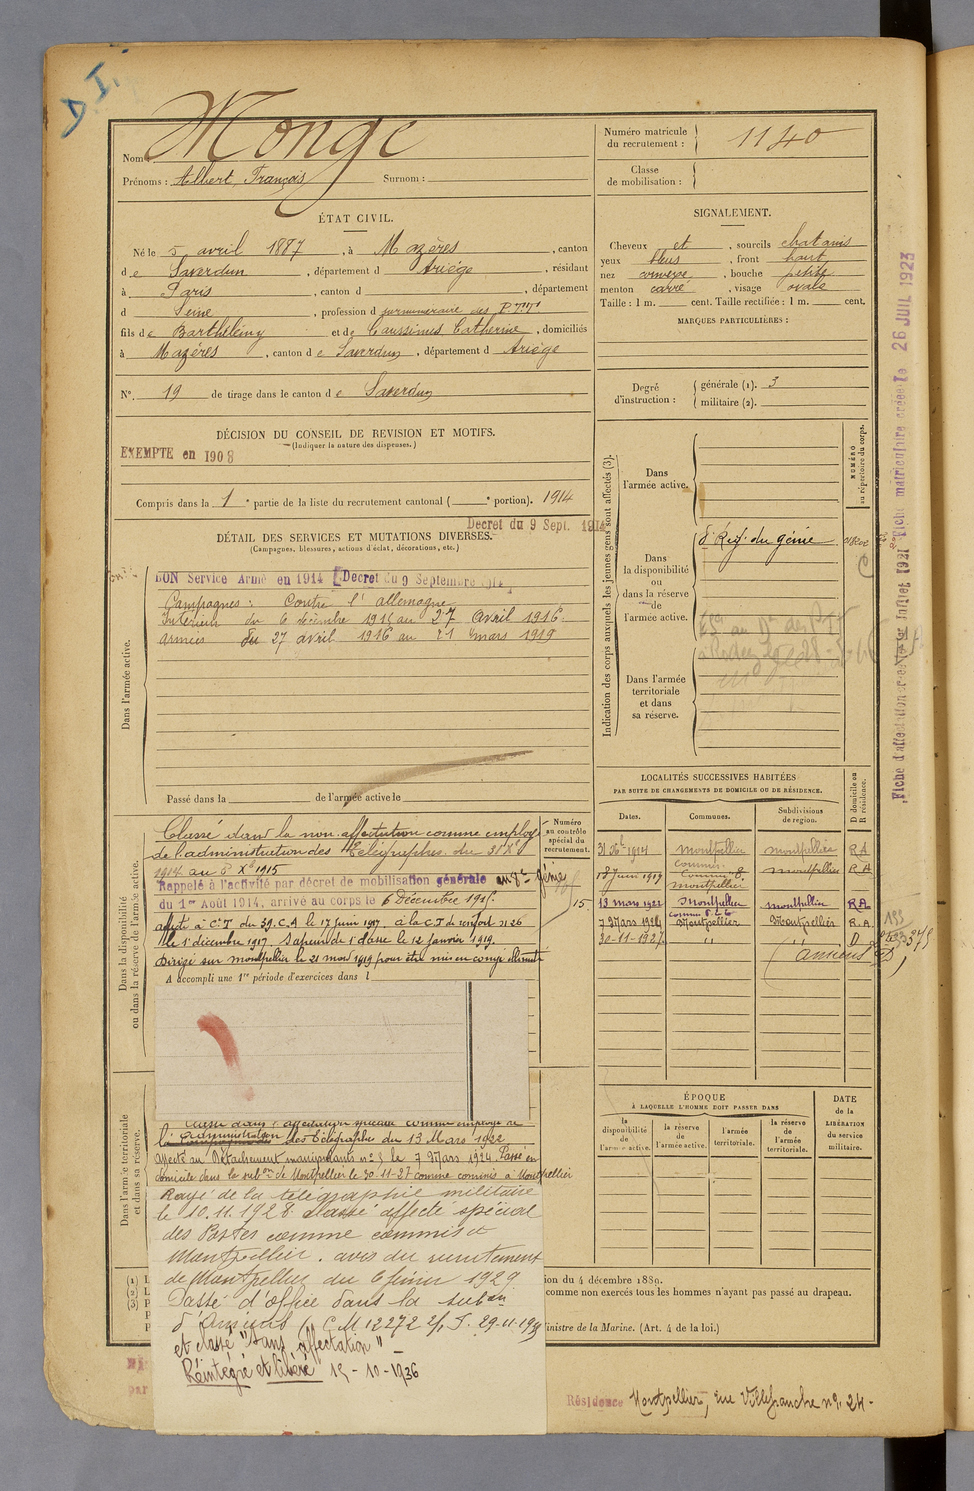 D I.
Nom Monge
Prénoms : Albert, François Surnom :
ÉTAT CIVIL.
Né le 5 avril 1887, à Mazères, canton
de Saverdun, département d Ariège, résidant
à Paris, canton d , département
d Seine, profession d surnuméraire des P.T.T
fils de Barthélemy et de Caussinus Catherine, domiciliés
à Mazères, canton de Saverdun, département d Ariège
N°. 19 de tirage dans le canton de Saverdun
DÉCISION DU CONSEIL DE REVISION ET MOTIFS.
(Indiquer la nature des dispenses.)
EXEMPTE en 1908
Compris dans la 1e partie de la liste du recrutement cantonal ( e portion). 1914
Decret du 9 Sept. 1914
DÉTAIL DES SERVICES ET MUTATIONS DIVERSES.
(Campagnes, blessures, actions d'éclat, décorations, etc.)
Dans l'armée active.
BON Service Armé en 1914 [Decret du 9 Septembre 1914
Campagnes : Contre l'allemagne
Intérieur du 6 décembre 1915 au 27 avril 1916
armées du 27 avril 1916 au 21 mars 1919
Passé dans la de l'armée active le
Dans la disponibilité
ou dans la réserve de l'armée active.
Numéro
au contrôle
spécial du
recrutement.
Classé dans la non affectation comme employé
de l'administration des Télégraphes du 31 Xbre
1914 au 5 Xbre 1915
Rappelé à l'activité par décret de mobilisation générale au 8e Génie
du 1er Août 1914, arrivé au corps le 6 Décembre 1915.
affecté à C.T du 39 C.A le 17 juin 1917. à la C.T de renfort n 26
le 1 décembre 1917. Sapeur de 1e classe le 12 janvier 1919.
Dirigé sur Montpellier le 21 mars 1919 pour être mis en congé illimité
A accompli une 1re période d'exercices dans l
Dans l'armée territoriale
et dans sa réserve.
Classé dans l'affectation spéciale comme employé de
l'administration des Télégraphes du 13 Mars 1922
affecté au Détachement manipulants n° 3 le 7 Mars 1924. Passé en
domicile dans la subon de Montpellier le 30-11-27 comme commis à Montpellier
Rayé de la télégraphie militaire
le 10.11.1928 classé affecté spécial
des Postes comme commis à
Montpellier. avis du recrutement
de Montpellier du 6 février 1929
Passé d'office dans la subon
d'Amiens (C.M 12272 2/1 S. 29-11-1929
et classé "Sans affectation"
Réintégré et libéré 15-10-1936
ion du 4 décembre 1889.
comme non exercés tous les hommes n'ayant pas passé au drapeau.
inistre de la Marine. (Art. 4 de la loi.)
Numéro matricule
du recrutement : 1140
Classe
de mobilisation :
SIGNALEMENT.
Cheveux et , sourcils chatains
yeux bleus , front haut
nez convexe , bouche petite
menton carré , visage ovale
Taille : 1 m. cent. Taille rectifiée : 1 m. cent.
MARQUES PARTICULIÈRES :
Degré
d'instruction :
générale (1). 3
militaire (2).
Indication des corps auxquels les jeunes gens sont affectés (3).
NUMÉRO
au répertoire du corps.
Dans
l'armée active.
Dans
la disponibilité
ou
dans la réserve
de
l'armée active.
8e Reg. du génie
Dans l'armée
territoriale
et dans
sa réserve.
LOCALITÉS SUCCESSIVES HABITÉES
PAR SUITE DE CHANGEMENTS DE DOMICILE OU DE RÉSIDENCE.
Dates. Communes. Subdivisions
de région.
D domicile ou
R résidence.
31 Xbre 1914 Montpellier Montpellier RA
18 juin 1919 Montpellier Montpellier R.A
13 mars 1922 Montpellier Montpellier RA
7 Mars 1924 Montpellier Montpellier R.A.
30-11-1927 " " D
Amiens D
ÉPOQUE
À LAQUELLE L'HOMME DOIT PASSER DANS
la
disponibilité
de
l'armée active.
la réserve
de
l'armée active.
l'armée
territoriale.
la réserve
de
l'armée
territoriale.
DATE
de la
LIBÉRATION
du service
militaire.
Fiche matriculaire créée le 26 JUIL 1923
Fiche d'affectation créée le Juillet 1921
Résidence Montpellier, rue Villefranche n° 24-